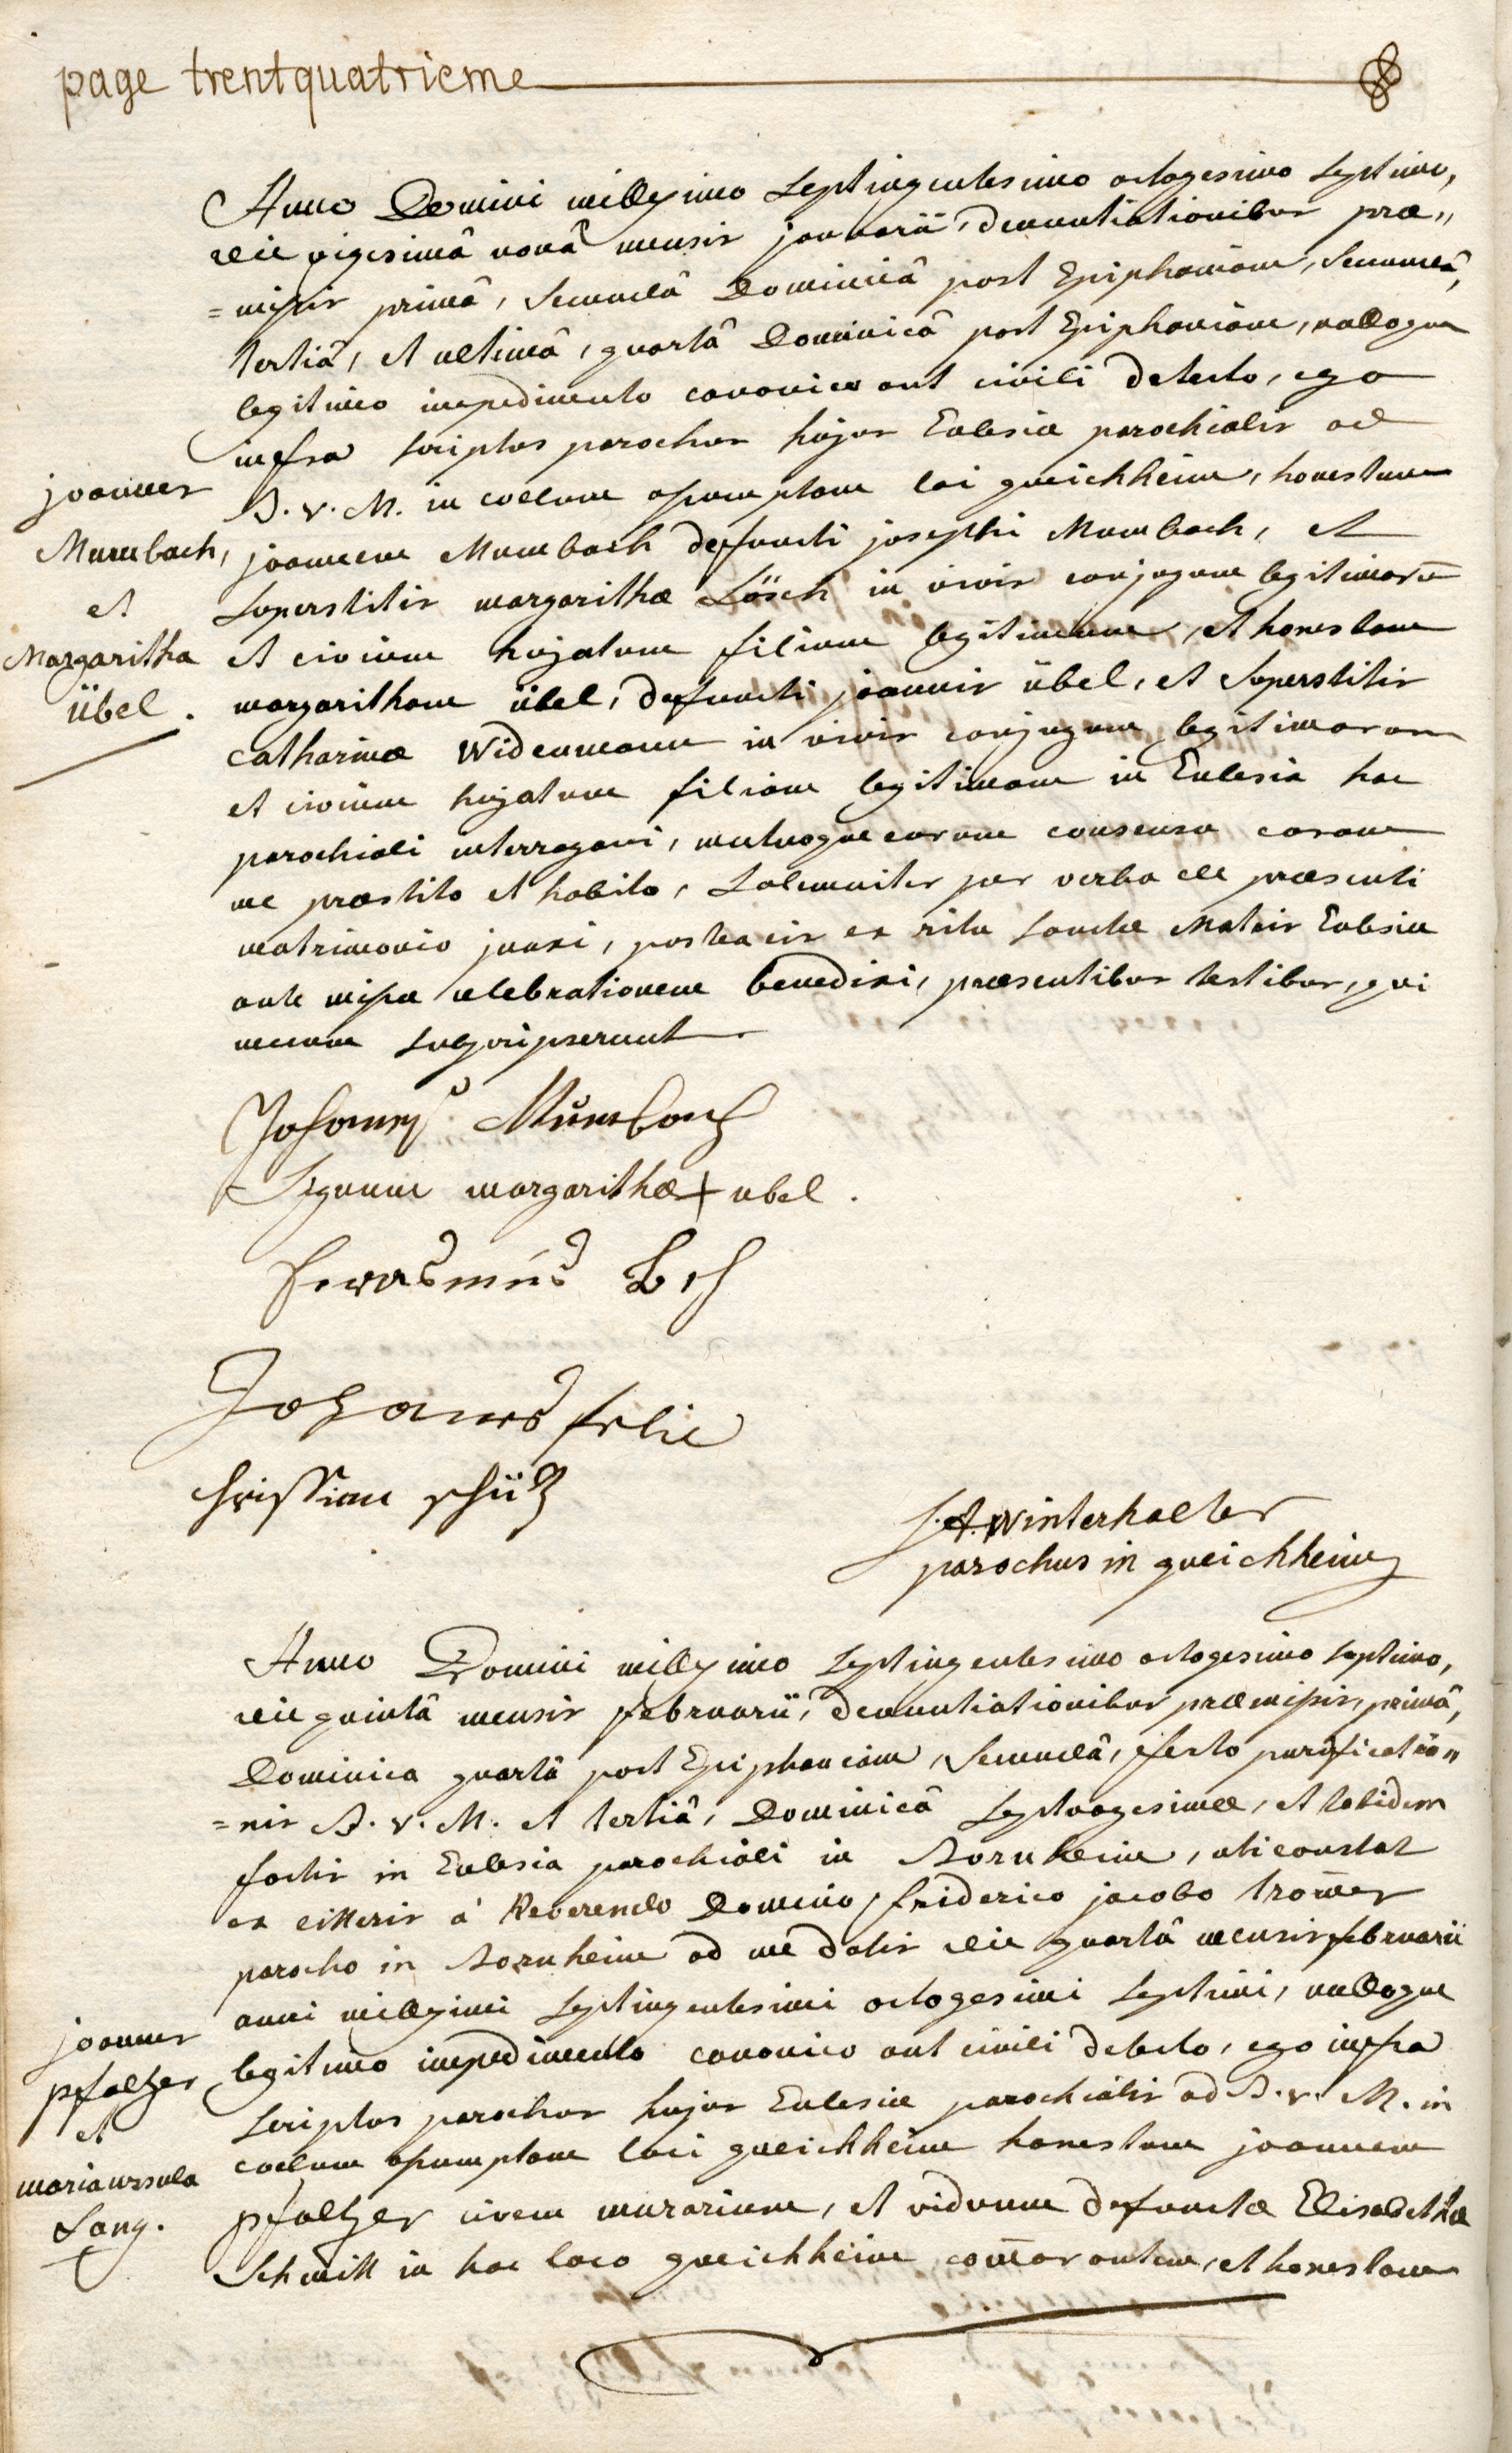 page trentquatrieme
Anno Domini millesimo septingentesimo octogesimo septimo,
die vigesimâ nonâ mensis januarii, denuntiationibus præ„
=missis primâ, secundâ Dominicâ post Epiphaniam, secundâ,
tertiâ, et ultimâ, quartâ Dominicâ post Epiphaniam, nulloque
legitimo impedimento canonico aut civili detecto, ego
infra scriptus parochus hujus Eclesiæ parochialis ad
B. V. M. in coelum assumptam loci queichheim, honestum
joannes
Mumbach,
et
Margaritha
übel.
joannem Mumbach defuncti josephi Mumbach, et
superstitis margarithæ Lösch in vivis conjugum legitimorū
et civium hujatum filium legitimum, et honestam
margaritham übel, defuncti joannis übel, et superstitis
catharinæ Widenmann in vivis conjugum legitimorum
et civium hujatum filiam legitimam in Eclesia hac
parochiali interrogavi, mutuoque eorum consensu coram
me præstito et habito, solemniter per verba de præsenti
matrimonio junxi, postea eis ex ritu sanctæ Matris Eclesiæ
ante missæ celebrationem benedixi, præsentibus testibus, qui
mecum subscripserunt
Johannes Mumbach
Signum margarithæ + übel.
Johannes
Christian Schütz
J. A. Winterhalter
parochus in queichheim
Anno Domini millesimo septingentesimo octogesimo septimo,
die quintâ mensis februarii, denuntiationibus præmissis, primâ,
Dominica quartâ post Epiphaniam, secundâ, festo purificatio„
=nis B. V. M. et tertiâ, Dominicâ septuagesimæ, et totidem
factis in Eclesia parochiali in Bornheim, uti constat
ex litteris à Reverendo Domino friderico jacobo trom̄er
parocho in Bornheim ad me datis die quartâ mensis februarii
anni millesimi septingentesimi octogesimi septimi, nulloque
legitimo impedimento canonico aut civili detecto, ego infra
joannes
pfaltzer
et
maria ursula
Lang.
scriptus parochus hujus Eclesiæ parochialis ad B. V. M. in
coelum assumptam loci queichheim honestum joannem
pfaltzer civem murarium, et viduum defunctæ Elisabethæ
Schmitt in hoc loco queichheim com̄orantem, et honestam